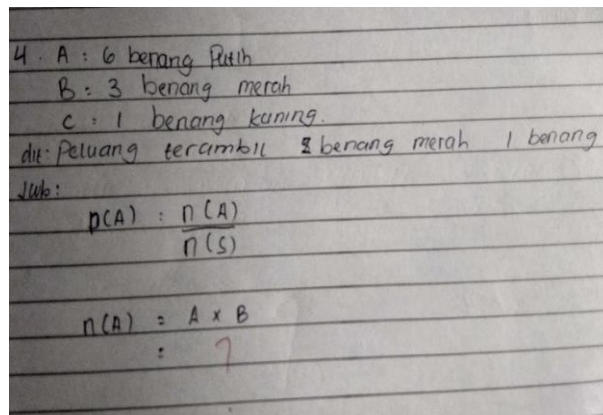 4. A : 6 benang Putih
B : 3 benang merah
C : 1 benang kuning.
dit: Peluang terambil 2 benang merah 1 benang
Jwb :
P(A) : n(A)
n(S)
n(A) = A x B
: ?